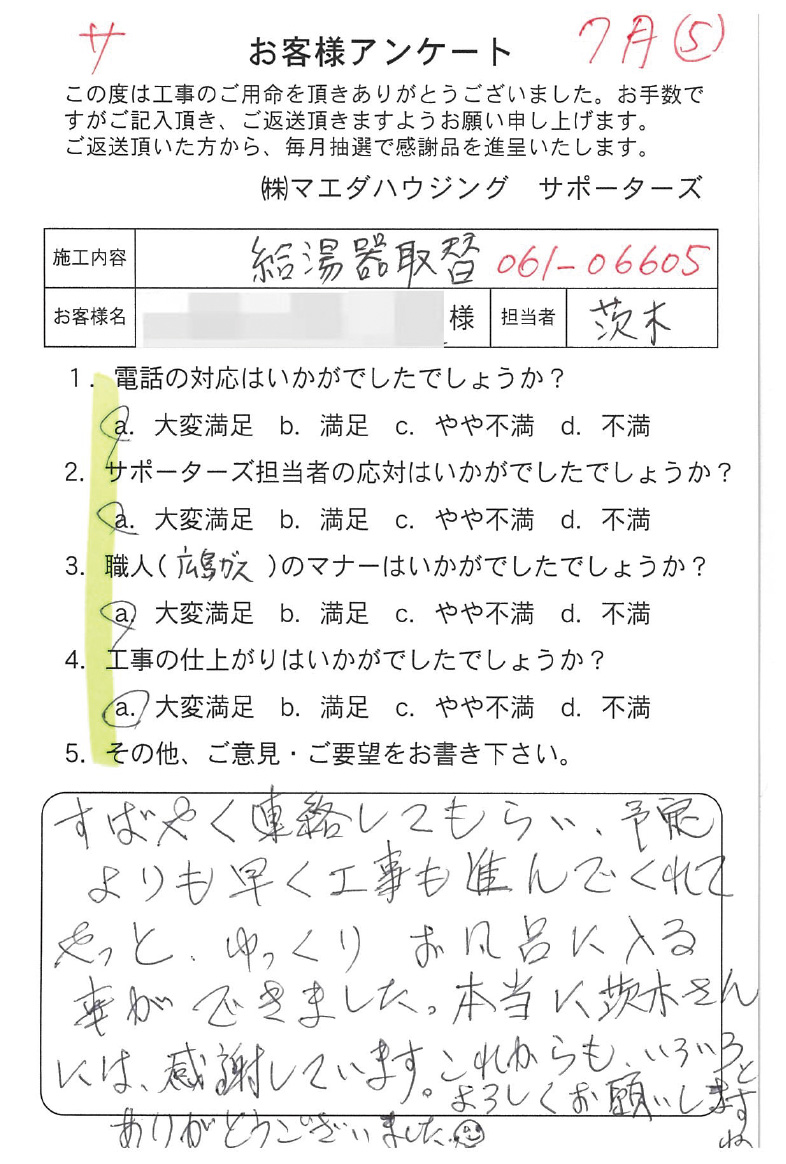 サ
お客様アンケート
7月⑤
この度は工事のご用命を頂きありがとうございました。お手数で
すがご記入頂き、ご返送頂きますようお願い申し上げます。
ご返送頂いた方から、毎月抽選で感謝品を進呈いたします。
㈱マエダハウジング サポーターズ
施工内容 給湯器取替 061-06605
お客様名 様 担当者 茨木
1. 電話の対応はいかがでしたでしょうか？
a. 大変満足 b. 満足 c. やや不満 d. 不満
2. サポーターズ担当者の応対はいかがでしたでしょうか？
a. 大変満足 b. 満足 c. やや不満 d. 不満
3. 職人(広島ガス)のマナーはいかがでしたでしょうか？
a. 大変満足 b. 満足 c. やや不満 d. 不満
4. 工事の仕上がりはいかがでしたでしょうか？
a. 大変満足 b. 満足 c. やや不満 d. 不満
5. その他、ご意見・ご要望をお書き下さい。
すばやく連絡してもらい、予定
よりも早く工事も進んでくれて
やっと、ゆっくり お風呂に入る
事ができました。本当に茨木さん
には、感謝しています。これからも、いろいろと
よろしくお願いしますね
ありがとうございました